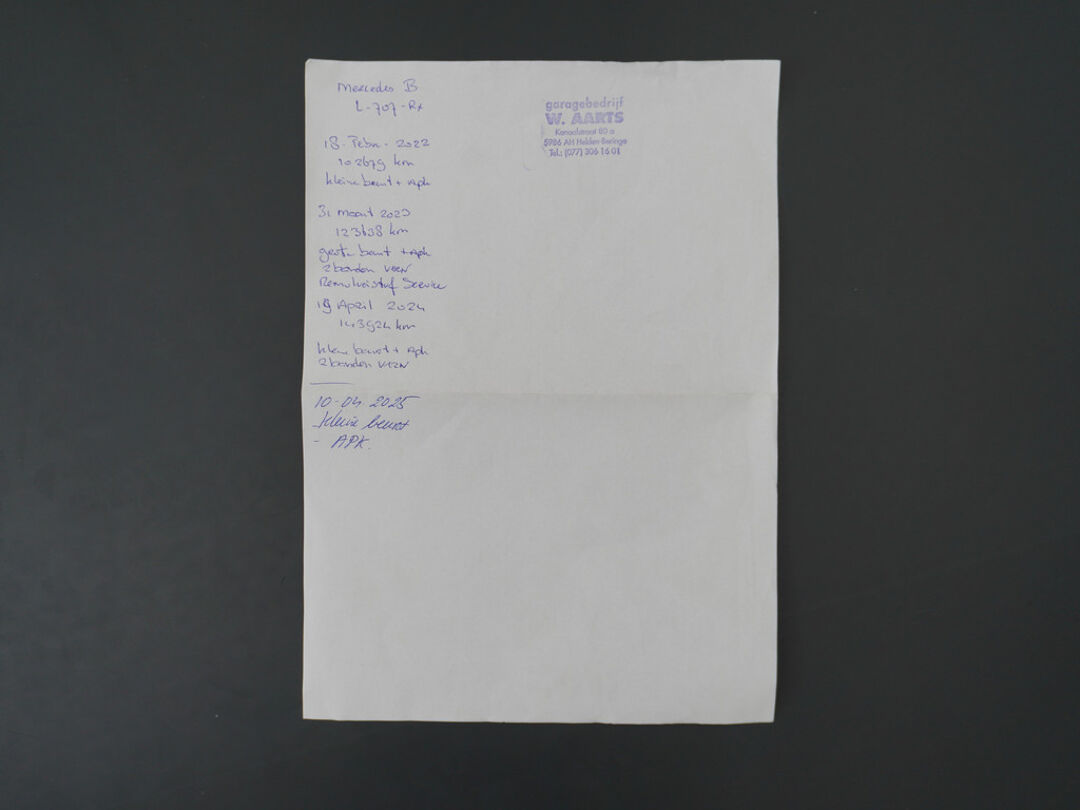 Mercedes B
L-707-Rx
garagebedrijf
W. AARTS
Kanaalstraat 80 a
5986 AH Helden-Beringe
Tel.: (077) 306 16 01
18-Febr.- 2022
102679 km
kleine beurt + Apk
31 maart 2023
123638 km
grote beurt + Apk
2 banden VERN
Remvloeistof Service
19 April 2024
143924 km
kleine beurt + Apk
2 banden VERN
10-04 2025
- kleine beurt
- APK.